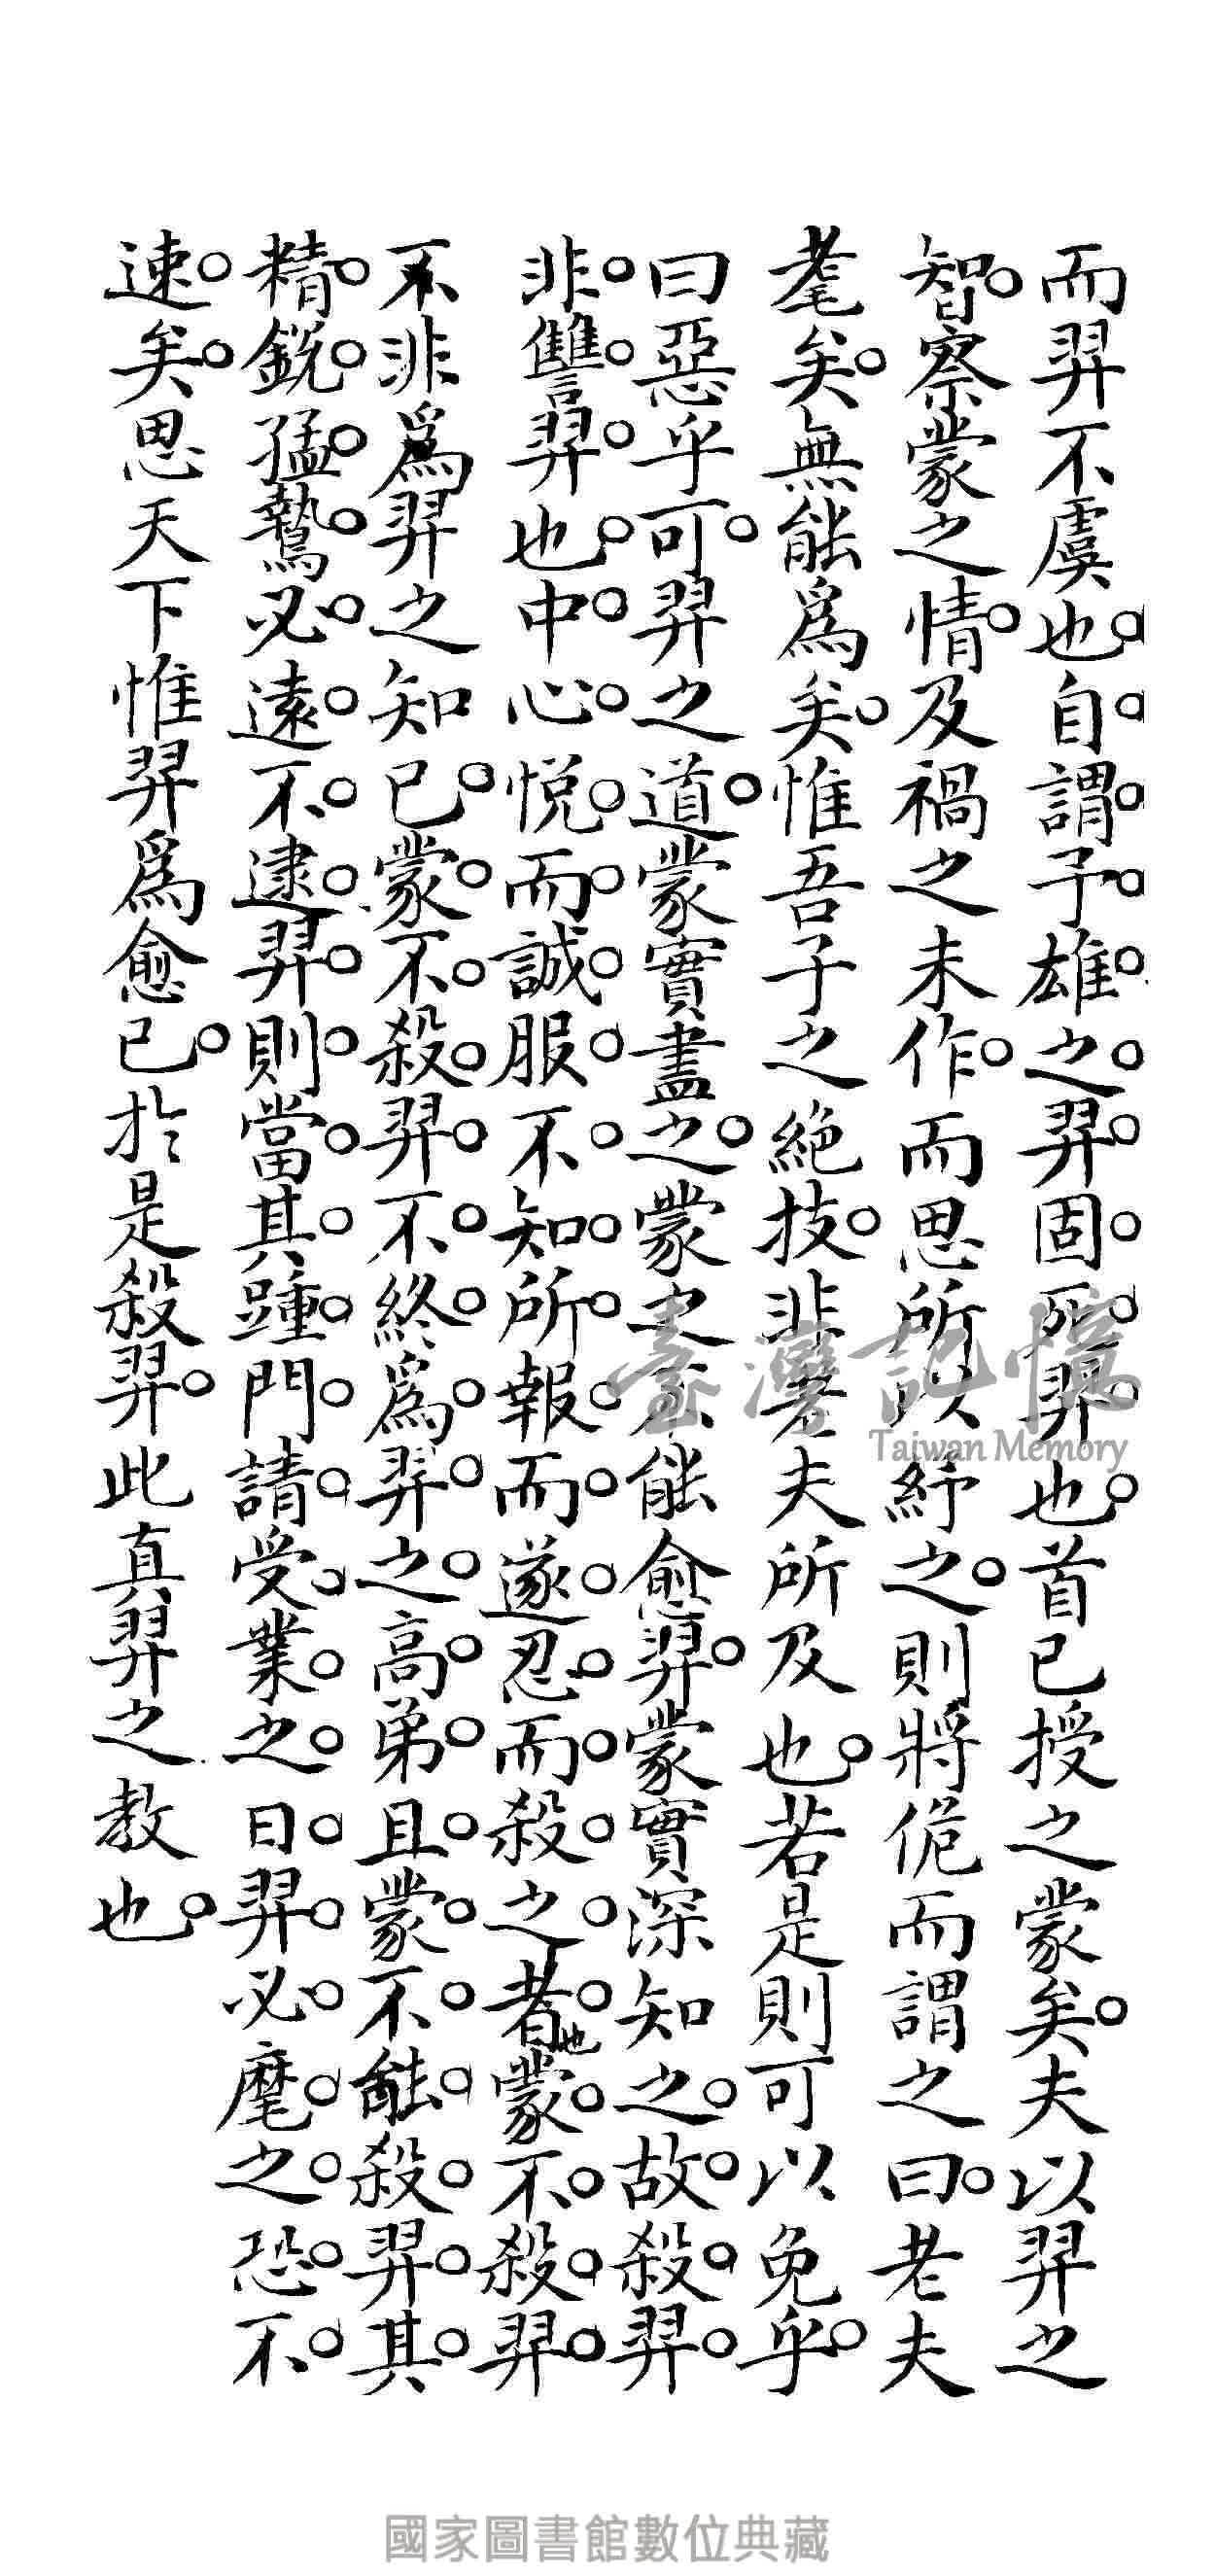 而羿不虞也自謂予雄之羿固死羿也首已授之蒙矣夫以羿之
智察蒙之情及禍之未作而思所以紓之則將佹而謂之曰老夫
耄矣無能爲矣惟吾子之絶技非老夫所及也若是則可以免乎
曰惡乎可羿之道蒙實盡之蒙之不能愈羿蒙實深知之故殺羿
非讐羿也中心悅而誠服不知所報而遂忍而殺之者也蒙不殺羿
不非爲羿之知已蒙不殺羿不終爲羿之高弟且蒙不能殺羿其
精銳猛鷙必遠不逮羿則當其踵門請受業之日羿必麾之恐不
速矣思天下惟羿爲愈已於是殺羿此真羿之教也
臺灣記憶
Taiwan Memory
國家圖書館數位典藏